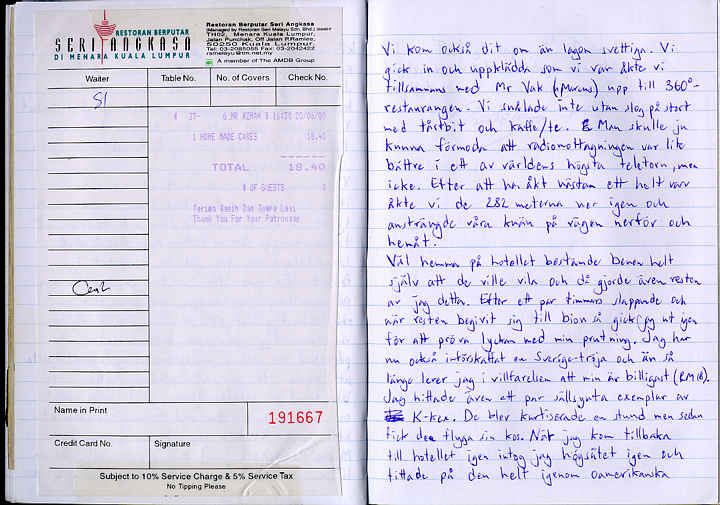 RESTORAN BERPUTAR
SERI ANGKASA
DI MENARA KUALA LUMPUR
Restoran Berputar Seri Angkasa
(Managed by Restoran Seri Melayu Sdn. Bhd.)
TH02, Menara Kuala Lumpur,
Jalan Punchak, Off Jalan P.Ramlee,
50250 Kuala Lumpur.
Tel: 03-2085055 Fax: 03-2042422
A member of The AMDB Group
Waiter Table No. No. of Covers Check No.
1 HOME MADE CAKES 18.40
TOTAL 18.40
# OF GUESTS
Terima Kasih Dan Jumpa Lagi
Thank You For Your Patronage
Cash
Name in Print
191667
Credit Card No. Signature
Subject to 10% Service Charge & 5% Service Tax
No Tipping Please
Vi kom också dit om än lagom svettiga. Vi
gick in och uppklädda som vi var åkte vi
tillsammans med Mr Vak (Murans) upp till 360°-
restaurangen. Vi snålade inte utan slog på stort
med tårtbit och kaffe/te. Man skulle ju
kunna förmoda att radiomottagningen var lite
bättre i ett av världens högsta teletorn, men
icke. Efter att ha åkt nästan ett helt varv
åkte vi de 282 meterna ner igen och
ansträngde våra knän på vägen nerför och
hemåt.
Väl hemma på hotellet bestämde benen helt
själv att de ville vila och då gjorde även resten
av jag detta. Efter ett par timmars slappande och
när resten begivit sig till bion så gick jag ut igen
för att pröva lyckan med min prutning. Jag har
nu också införskaffat en Sverige-tröja och än så
länge lever jag i villfarelsen att min är billigast (RM18).
Jag hittade även ett par sällsynta exemplar av
K-kex. De blev kurtiserade en stund men sedan
fick de flyga sin kos. När jag kom tillbaka
till hotellet igen intog jag högsätet igen och
tittade på den helt igenom oamerikanska